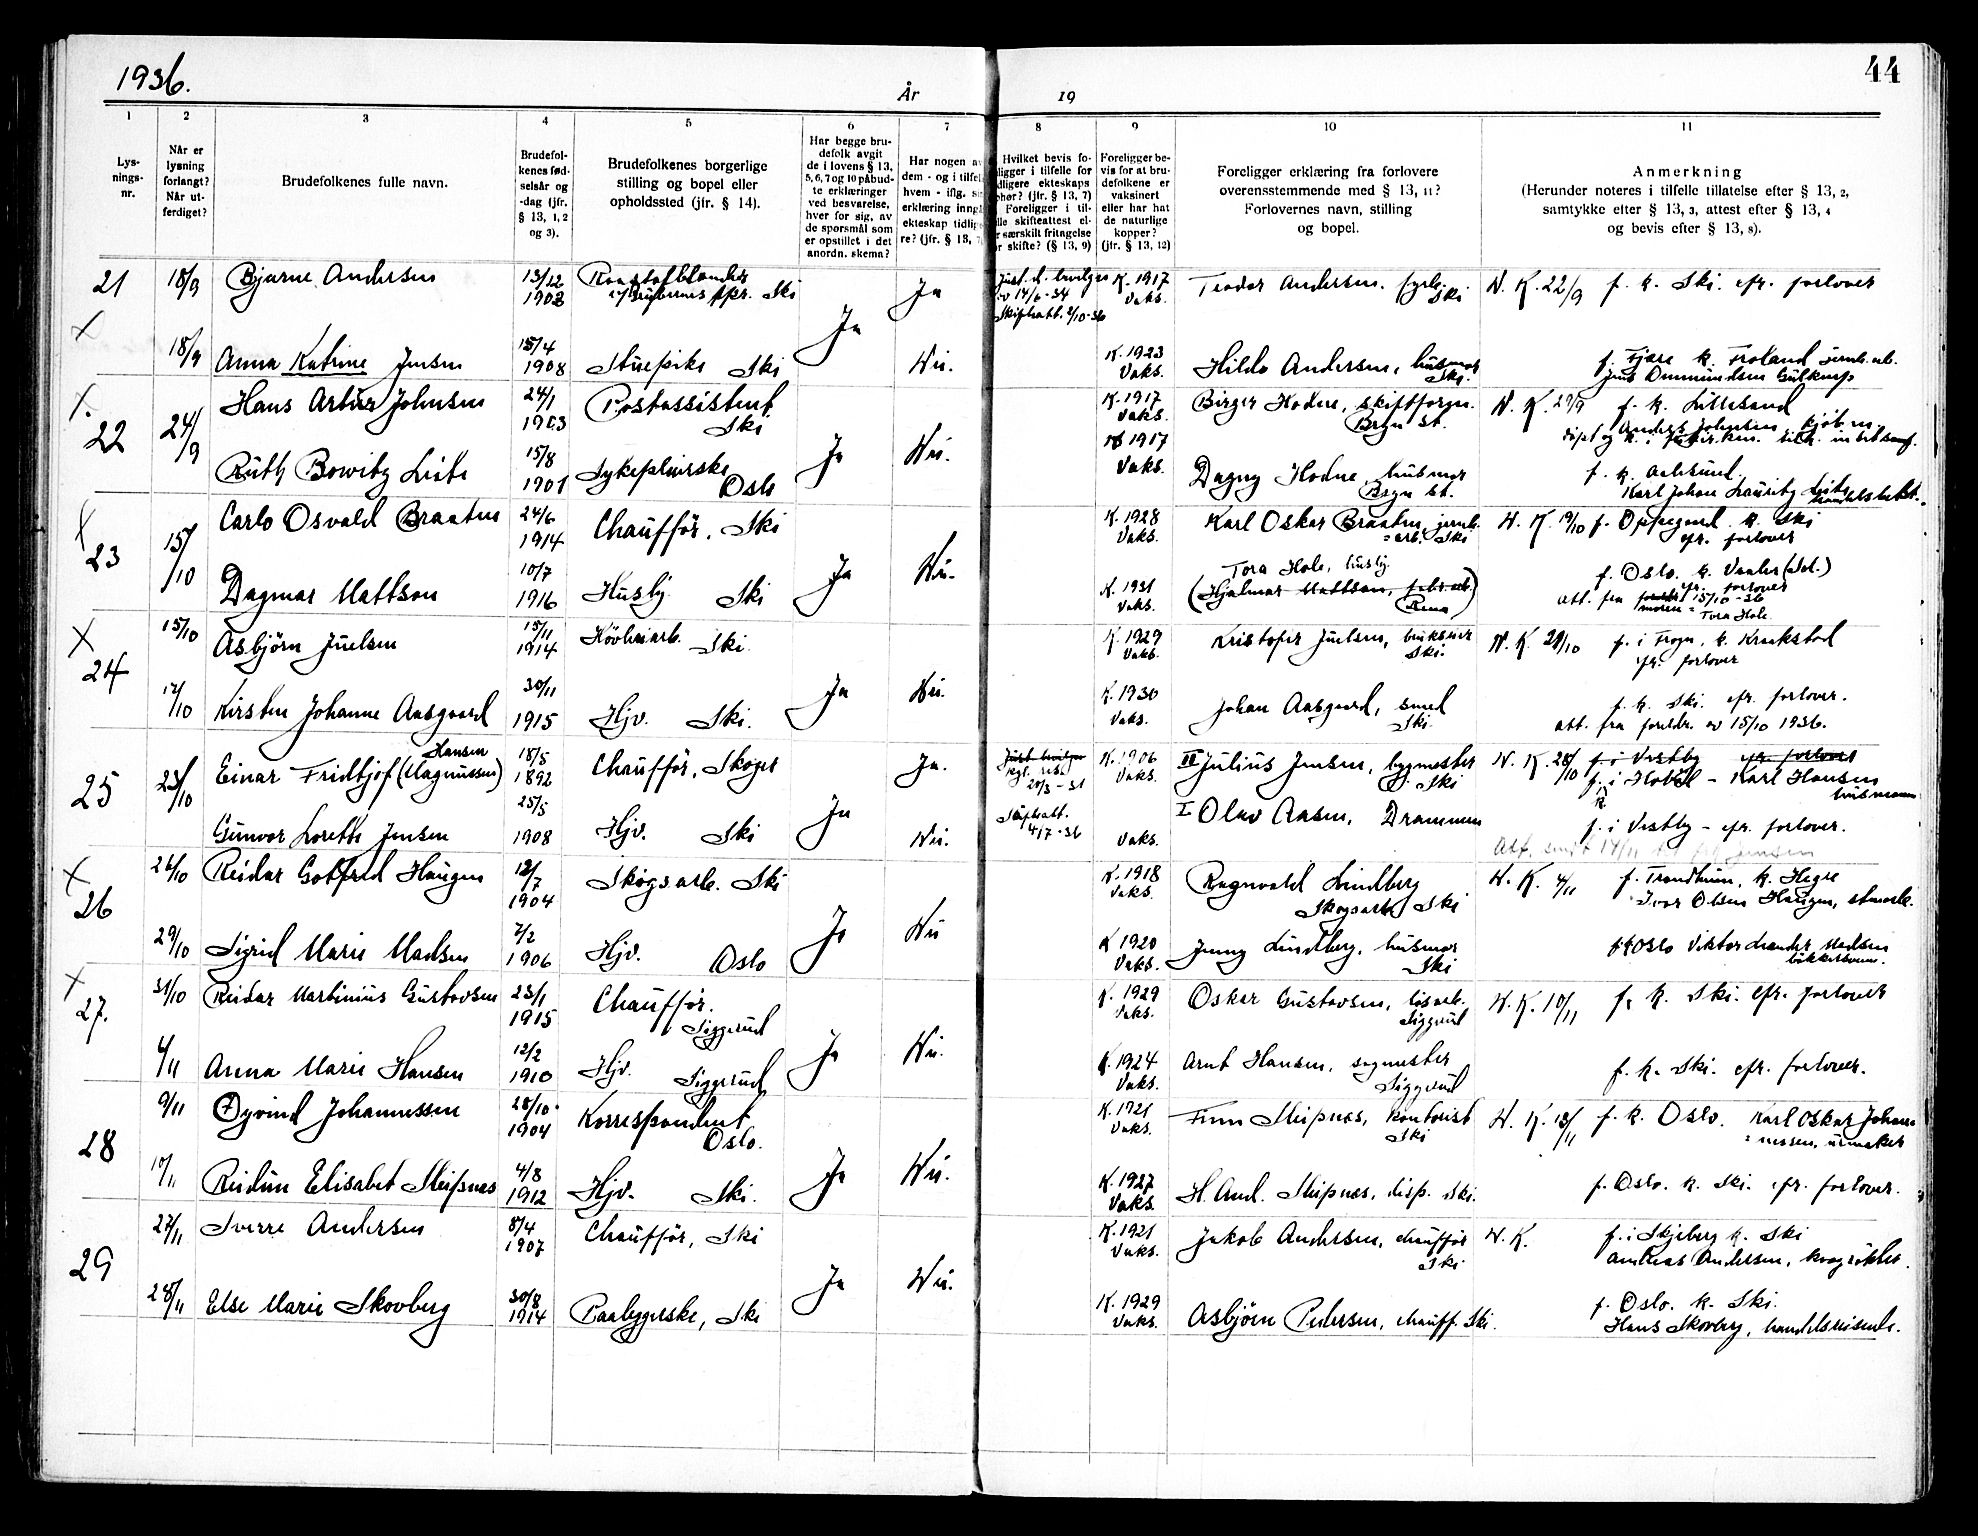 1936.
44
År
19
1
2
3
4
5
6
7
8
9
10
11
Lys-
nings-
nr.
Når er
lysning
forlangt?
Når ut-
ferdiget?
Brudefolkenes fulle navn.
Brudefol-
kenes fød-
selsår og
-dag (jfr.
§ 13, 1, 2
og 3).
Brudefolkenes borgerlige
stilling og bopel eller
opholdssted (jfr. § 14).
Har begge bru-
defolk avgit
de i lovens § 13,
5, 6, 7 og 10 påbud-
te erklæringer
ved besvarelse,
hver for sig, av
de spørsmål som
er opstillet i det
anordn. skema?
Har nogen av
dem - og i tilfel
hvem - iflg. si
erklæring inng
ekteskap tidlig
re? (jfr. § 13, 7
Hvilket bevis fo-
ligger i tilfelle for
dligere ekteskaps
phør? (jfr. § 13, 7)
Foreligger i til-
lle skifteattest el-
r særskilt fritagelse
or skifte? (§ 13, 9)
Foreligger be-
vis for at bru-
defolkene er
vaksinert
eller har hat
de naturlige
kopper?
(jfr. § 13, 12)
Foreligger erklæring fra forlovere
overensstemmende med § 13, 11?
Forlovernes navn, stilling
og bopel.
Anmerkning
(Herunder noteres i tilfelle tillatelse efter § 13, 2,
samtykke efter § 13, 3, attest efter § 13, 4
og bevis efter § 13, 8).
21 18/9 Bjarne Andersen 13/12 Ja K. 1917 Teodor Andersen, N. K. 22/9 f. k. Ski. cfr. forlover
1902 Ski av 14/6-34 Vaks. Ski
Skifteatt. 2/10-36
x Ja
18/9 Anna Katrine Jensen 15/4 Stuepike Ski Nei. K. 1923 Hilda Andersen, husmor f. Fjære k. Froland
1908 Vaks. Ski.
x. 22 24/9 Hans Artur Johnsen 24/1 Postassistent K. 1917 Birger Hodne, N. K. 29/9 f. k. Lillesand
1903 Ski Vaks. Bryn st. Anders Johnsen,
Ja Nei.
Ruth Bowitz Leite 15/8 Sykepleierske K 1917 Dagny Hodne, husmor f. k. Aalesund.
1901 Oslo Vaks. Bryn st. Karl Johan Lauritz Leite
x 23 15/10 Carlo Osvald Braaten 24/6 Chaufför, Ski K. 1928 Karl Oskar Braaten, jernb. N. K. 19/10 f. Oppegaard k. Ski
1914 Vaks. arb. Ski cfr. forlover
Ja Nei. Tora Hole, husby.
Dagmar Mattson 10/7 Husby. Ski K. 1931 (Hjalmar Mattson, ) f. Oslo. k. Vaaler (Sol.)
1916 Vaks. Rena cfr. forlover
att. fra 15/10-36
moren = Tora Hole
x 24 15/10 Asbjörn Juelsen 15/11 Ski. K. 1929 Kristofer Juelsen, N. K. 20/10 f. i Frogn, k. Kraakstad
1914 Vaks. Ski. cfr. forlover
Ja Nei.
17/10 Kirsten Johanne Aasgaard 30/11 Hjv. Ski. K. 1930 Johan Aasgaard, smed f. k. Ski. cfr. forlover.
1915 Vaks. Ski. att. fra foreldr. av 15/10 1936.
25 23/10 Hansen
Einar Fridtjof (Magnussen) 18/5 Chaufför, Skoger Ja. K. 1906 II Julius Jensen, bygmester N. K. 28/10 f. i Vestby cfr. forlover
1892 20/3-31 Vaks. Ski f. i Hobøl - Karl Hansen
Ja Skifteatt. I Olav Aasen, Drammen k
Gunvor Lorette Jensen 25/5 Hjv. Ski Nei. 4/7-36 Vaks. f. i Vestby - cfr. forlover.
1908
x 26 26/10 Reidar Gotfred Haugen 12/7 Skogsarb. Ski K. 1918 Ragnvald Lindberg N. K. 4/11 f. Trondheim, k. Hegre
1904 Vaks. Skogsarb. Ski Ivar Olsen Haugen,
Ja Nei
29/10 Sigrid Marie Madsen 7/2 Hjv. Oslo K 1920 Jenny Lindberg, husmor f. k Oslo Viktor Leander Madsen
1906 Vaks. Ski
x 27. 31/10 Reidar Martinius Gustavsen 23/1 Chaufför. K. 1929 Oskar Gustavsen, N. K. 10/11 f. k. Ski. cfr. forlover
1915 Siggerud Vaks. Siggerud
Ja Nei.
4/11 Anna Marie Hansen 12/2 Hjv. Siggerud K. 1924 Arnt Hansen, sagmester f. k. Ski. cfr. forlover.
1910 Vaks. Siggerud
28 9/11 Øyvind Johannessen 28/10 Korrespondent K. 1921 Finn Sleipnæs, kontorist N. K. 13/11 f. k. Oslo. Karl Oskar Johan-
1904 Oslo. Vaks. Ski = nessen, urmaker
Ja Nei.
10/11 Reidun Elisabet Sleipnæs 4/8 Hjv. Ski. K. 1927 H. And. Sleipnæs, disp. Ski. f. Oslo. k. Ski. cfr. forlover.
1912 Vaks.
29 27/11 Sverre Andersen 8/4 Chaufför, Ski K. 1921 Jakob Andersen, chaufför N. K. f. i Skjeberg k. Ski
1907 Vaks. Ski Andreas Andersen,
Ja Nei.
28/11 Else Marie Skovberg 30/8 Paabyggerske, Ski K. 1929 Asbjörn Pedersen, chauff. Ski. f. Oslo. k. Ski.
1914 Vaks. Hans Skovberg, handelsreisende.